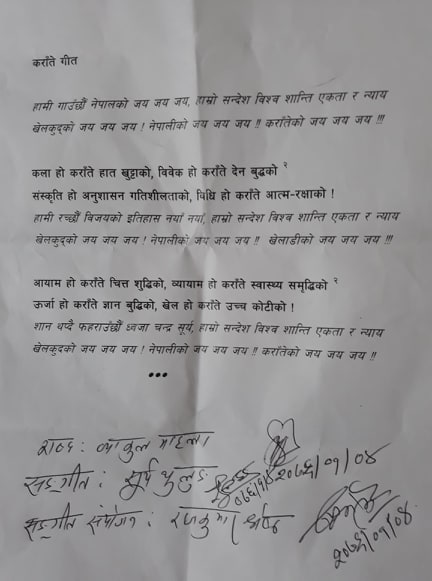 कराँते गीत
हामी गाउँछौं नेपालको जय जय जय, हाम्रो सन्देश विश्व शान्ति एकता र न्याय
खेलकुदको जय जय जय ! नेपालीको जय जय जय !! कराँतेको जय जय जय !!!
कला हो कराँते हात खुट्टाको, विवेक हो कराँते देन बुद्धको २
संस्कृति हो अनुशासन गतिशीलताको, विधि हो कराँते आत्म-रक्षाको !
हामी रच्छौं विजयको इतिहास नयाँ नयाँ, हाम्रो सन्देश विश्व शान्ति एकता र न्याय
खेलकुदको जय जय जय ! नेपालीको जय जय जय !! खेलाडीको जय जय जय !!!
आयाम हो कराँते चित्त शुद्धिको, व्यायाम हो कराँते स्वास्थ्य समृद्धिको २
ऊर्जा हो कराँते ज्ञान बुद्धिको, खेल हो कराँते उच्च कोटीको !
शान थप्दै फहराउँछौं ध्वजा चन्द्र सूर्य, हाम्रो सन्देश विश्व शान्ति एकता र न्याय
खेलकुदको जय जय जय ! नेपालीको जय जय जय !! कराँतेको जय जय जय !!
•••
शब्द : व्याकुल माइला
२०७६/०१/०४
सङ्गीत : सूर्य थुलुङ
सङ्गीत संयोजन : राजकुमार
२०७६/०१/०४